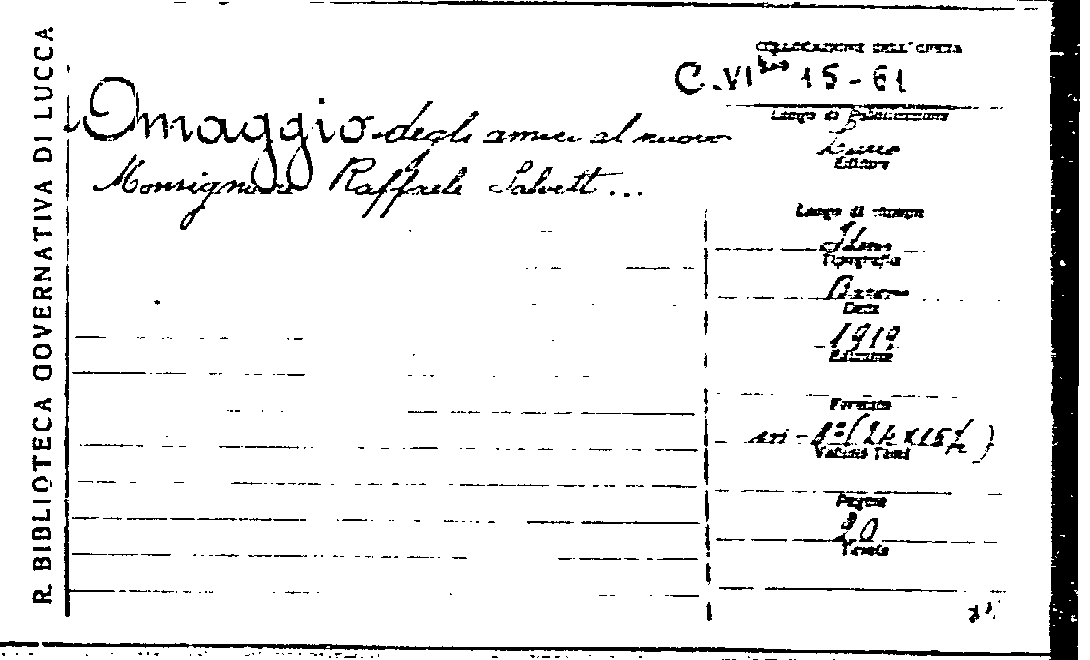 R. BIBLIOTECA GOVERNATIVA DI LUCCA
COLLOCAZIONE DELL'OPERA
C.VI bis 15-61
Omaggio degli amici al nuovo
Monsignore Raffaele Salvett...
Luogo di Pubblicazione
Lucca
Editore
Luogo di stampa
Idem
Tipografia
Data
1919
Edizione
Formato
in-8º (24x15
Volumi Tomi
Pagine
20
Tavole